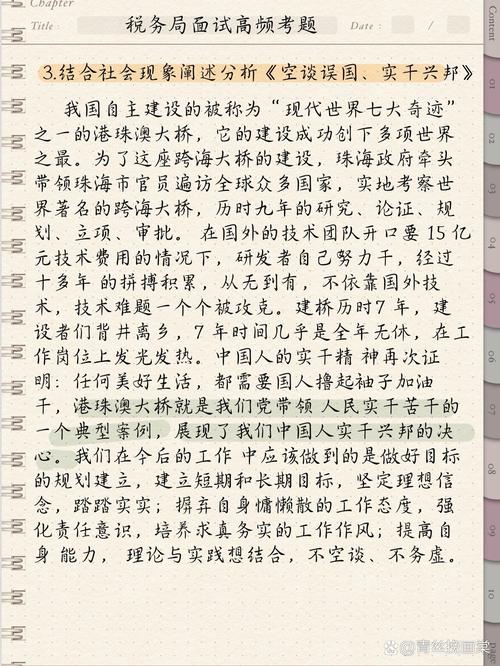 Chapter
Title :
税务局面试高频考题
Date :
/
/
Content
3.结合社会现象阐述分析《空谈误国、实干兴邦》
我国自主建设的被称为“现代世界七大奇迹”
之一的港珠澳大桥，它的建设成功创下多项世界
之最。为了这座跨海大桥的建设，珠海政府牵头
带领珠海市官员遍访全球众多国家，实地考察世
界著名的跨海大桥，历时九年的研究、论证、规
划、立项、审批。 在国外的技术团队开口要 15 亿
元技术费用的情况下，研发者自己努力干，经过
十多年 的拼搏积累，从无到有，不依靠国外技
术，技术难题一个个被攻克。建桥历时7 年，建
设者们背井离乡，7 年时间几乎是全年无休，在工
作岗位上发光发热。中国人的实干精 神再次证
明：任何美好生活，都需要国人撸起袖子加油
干，港珠澳大桥就是我们党带领 人民实干苦干的
一个典型案例，展现了我们中国人实干兴邦的决
心。我们在今后的工作 中应该做到的是做好目标
的规划建立，建立短期和长期目标，坚定理想信
念，踏踏实实；摒弃自身慵懒散的工作态度，强
化责任意识，培养求真务实的工作作风；提高自
身 能力， 理论与实践想结合，不空谈、不务虚。
01
02
03
04
05
06
07
08
09
10